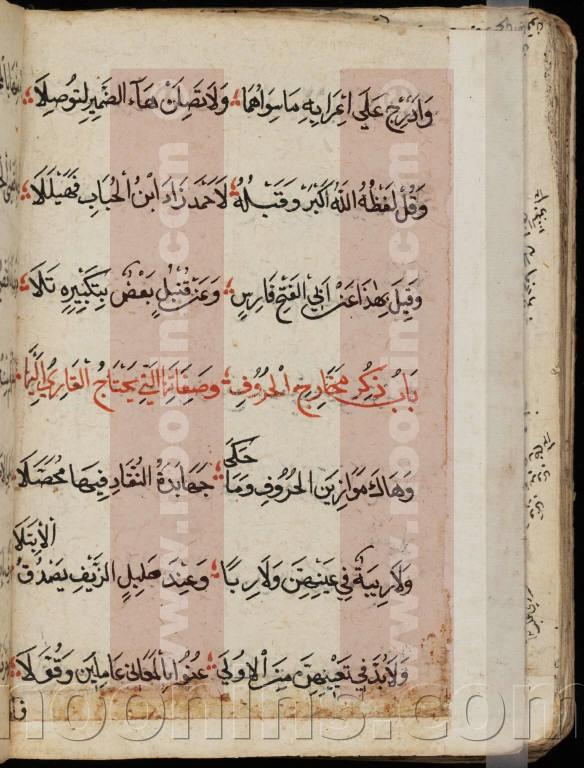 وَادْرِجْ عَلَى إِعْرَابِهِ مَا سِوَاهُمَا وَلَا تَصِلَنْ هَاءَ الضَّمِيرِ لِتُوصَلَا
وَقُلْ لَفْظُهُ اللهُ أَكْبَرُ وَقَبْلَهُ لِأَحْمَدَ زَادَ ابْنُ الْحُبَابِ فَهَيْلَلَا
وَقِيلَ بِهَذَا عَنْ أَبِي الْفَتْحِ فَارِسٍ وَعَنْ قُنْبُلٍ بَعْضٌ بِتَكْبِيرِهِ تَلَا
بَابُ ذِكْرِ مَخَارِجِ الْحُرُوفِ وَصِفَاتِهَا الَّتِي يَحْتَاجُ الْقَارِي إِلَيْهَا
وَهَاكَ مَوَازِينَ الْحُرُوفِ وَمَا حَكَى جَهَابِذَةُ النُّقَّادِ فِيهَا مُحَصَّلَا
وَلَا رِيبَةٌ فِي عَيْنِهِنَّ وَلَا رِبًا وَعِنْدَ صَلِيلِ الزَّيْفِ يَصْدُقُ الْإِبْتِلَا
وَلَا بُدَّ فِي تَعْيِينِهِنَّ مِنَ الْأُولَى عُنُوا بِالْمَعَانِي عَامِلِينَ وَقُوَّلَا
moomins.com
www.moomins.com
www.moomins.com